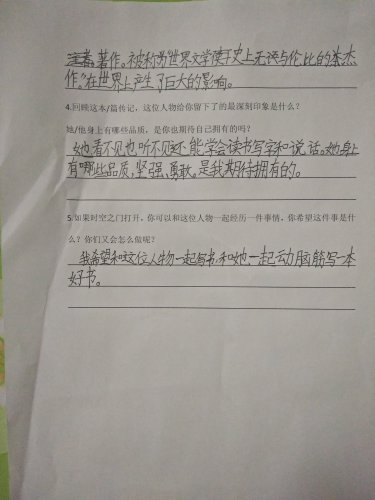 著作。被称为"世界文学史上无语与伦比的杰杰
作。"在世界上产生了巨大的影响。
4.回顾这本/篇传记，这位人物给你留下了的最深刻印象是什么？
她/他身上有哪些品质，是你也期待自己拥有的吗？
她看不见也听不见还能学会读书写字和说话。她身上
有哪些品质，坚强、勇敢。是我期待拥有的。
5.如果时空之门打开，你可以和这位人物一起经历一件事情，你希望这件事是什
么？你们又会怎么做呢？
我希望和这位人物一起写书，和她一起动脑筋写一本
好书。